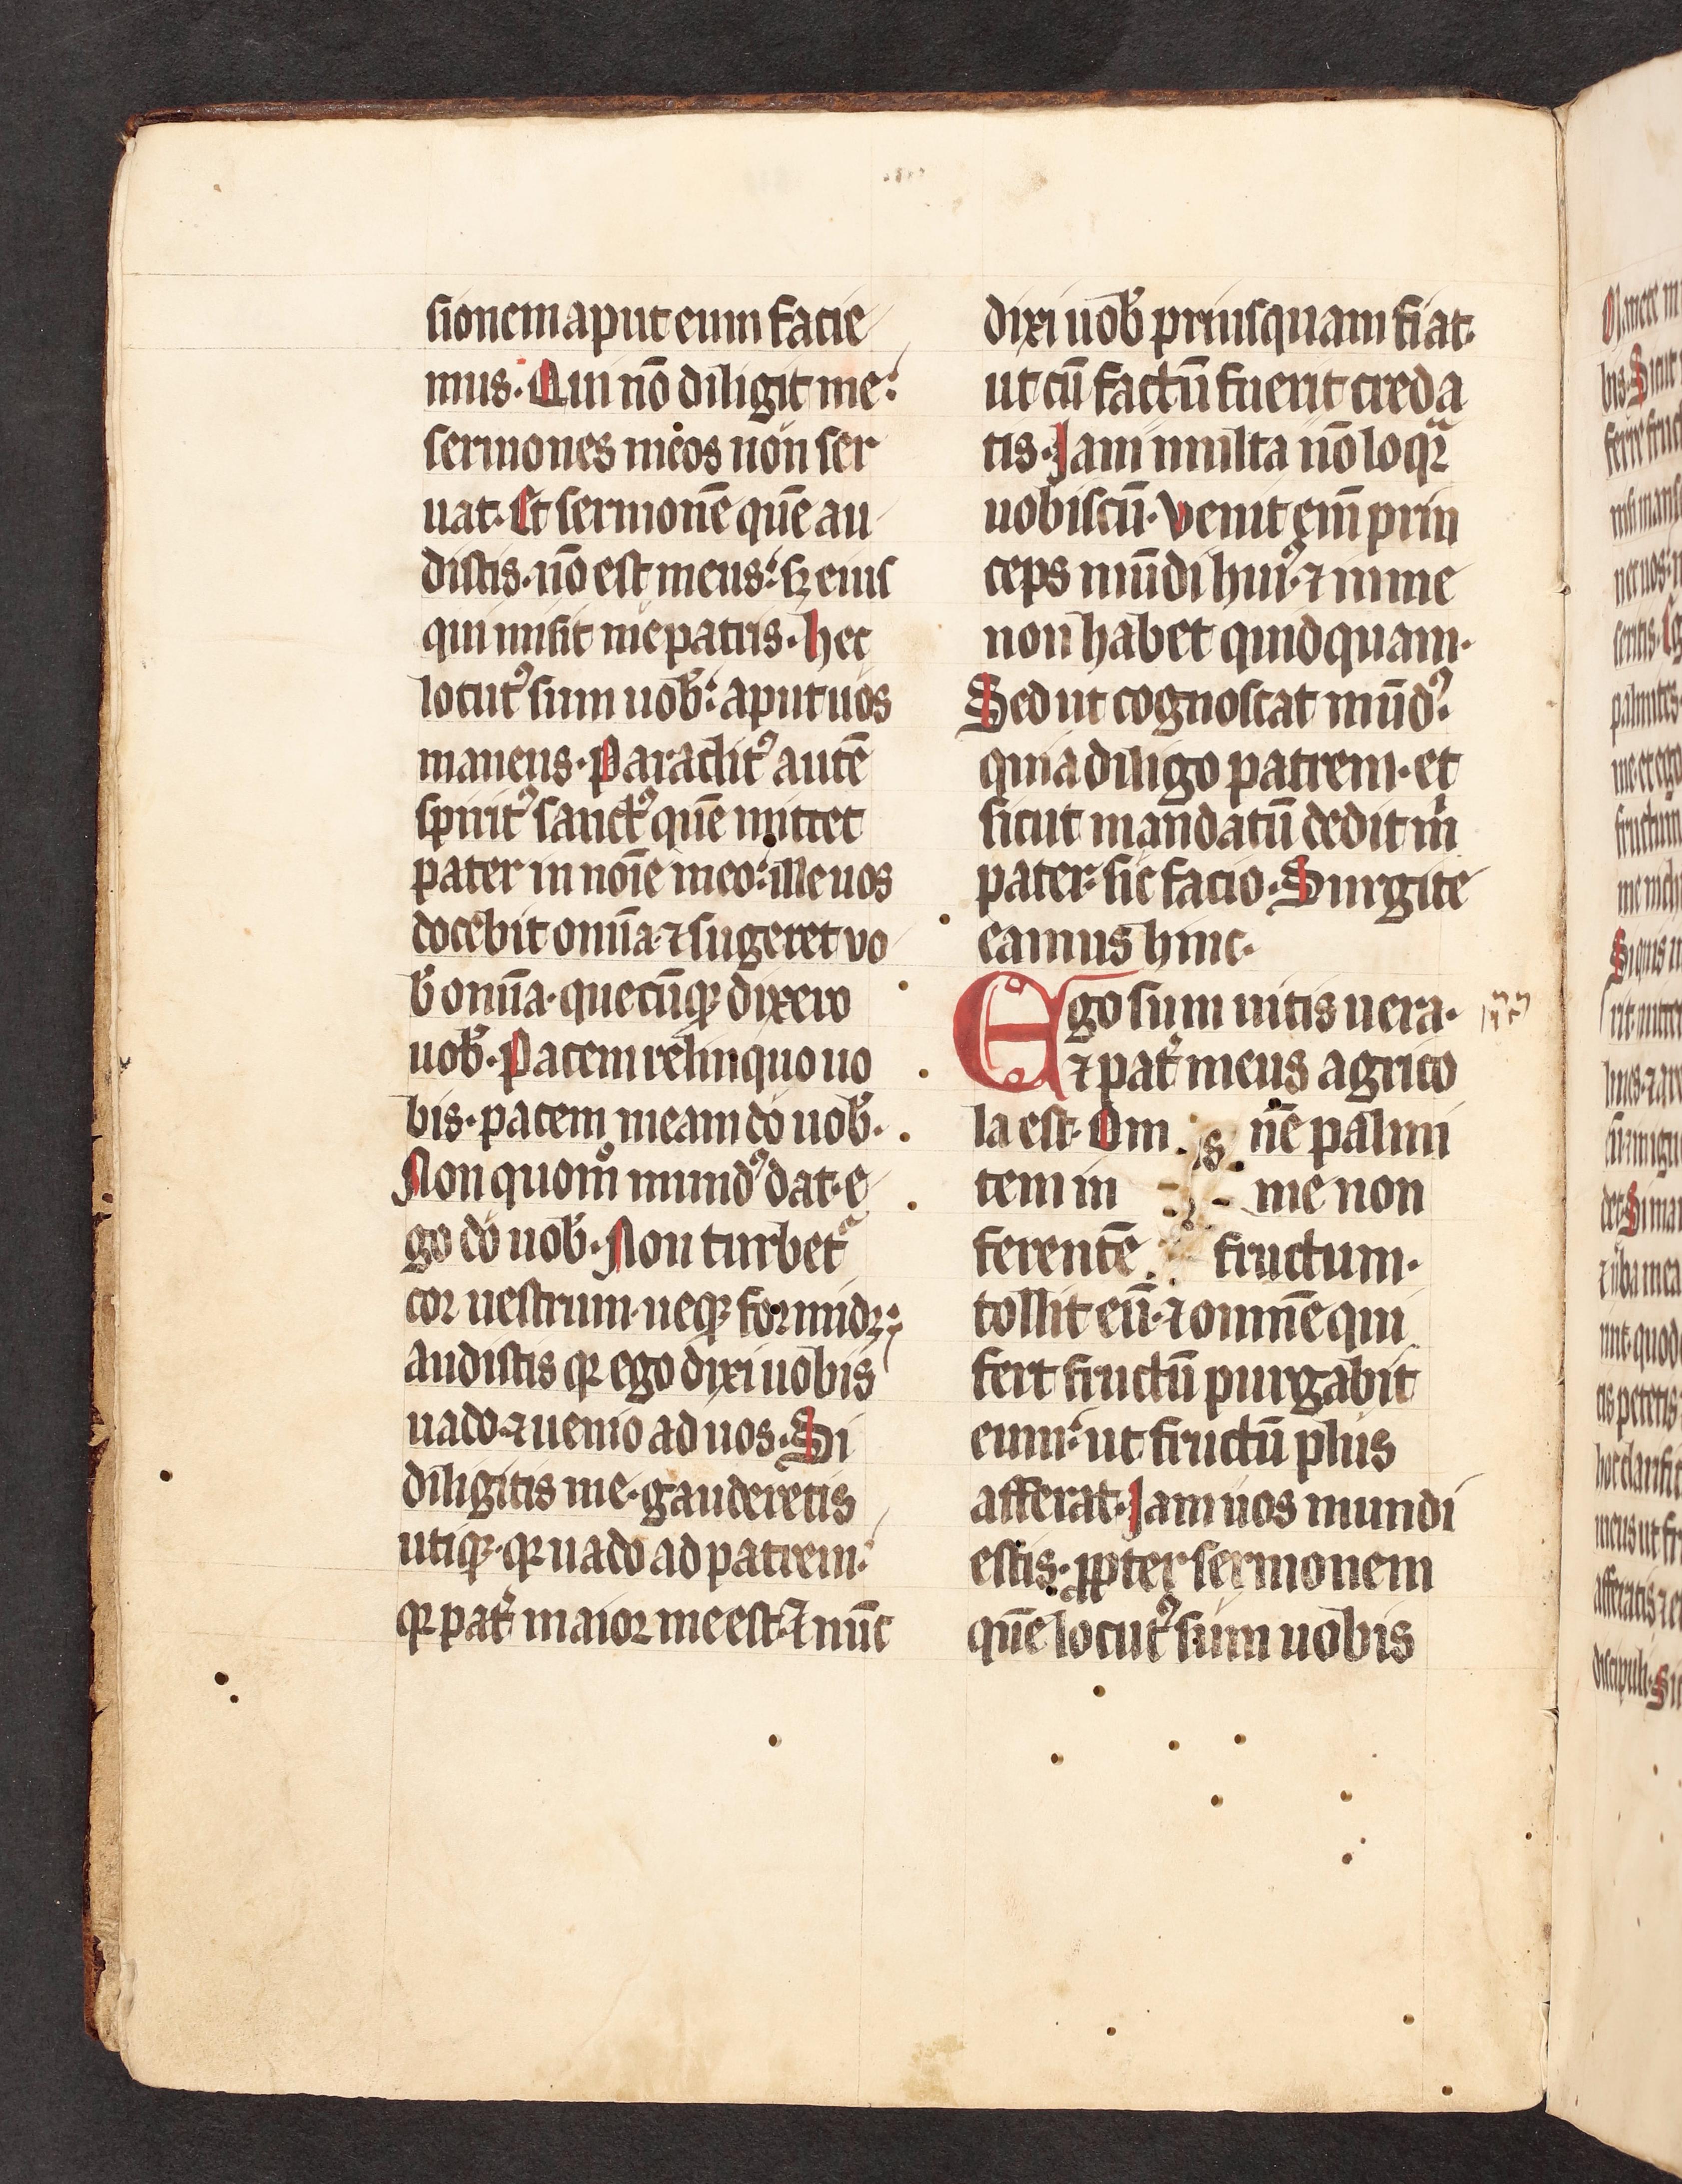 sionem aput eum facie
mus. Qui nō diligit me:
sermones meos non ser
uat. Et sermonē quē au
distis. nō est meus: sꝫ eius
qui misit me patris. hec
locutꝰ sum uob̄: aput uos
manens. Paraclitꝰ autē
spiritꝰ sanctꝰ quē mittet
pater in noīe meo: ille uos
docebit omīa ⁊ sugeret vo
b̄ omīa. quecūqꝫ dixero
uob̄. Pacem relinquo uo
bis. pacem meam do uob̄.
Non quom̊ mundꝰ dat. e
go do uob̄. Non turbetᷓ
cor uestrum. neqꝫ formidꝫ:
audistis qꝛ ego dixi uobis
uado. ⁊ uenio ad uos. Si
diligitis me. gauderetis
utiqꝫ. qꝛ uado ad patrem:
qꝛ pat̛ maior me est. ⁊ nūc
dixi uob̄ priusquam fiat.
ut cū factū fuerit creda
tis. Jam multa nō loqᷓꝛ
uobiscū. Venit eīm prin
ceps mūdi huiꝰ. ⁊ in me
non habet quidquam.
Sed ut cognoscat mūdꝰ:
quia diligo patrem. et
sicut mandatū dedit m̍
pater: sic facio. Surgite
eamus hinc.
Ego sum uitis uera.
⁊ pat̛ meus agrico
la est. Om nē palmi
tem in me non
ferentē fructum.
tollit eū. ⁊ omnē qui
fert fructū purgabit
eum: ut fructū plus
afferat. Jam uos mundi
estis. ꝓpter sermonem
quē locutꝰ sum uobis